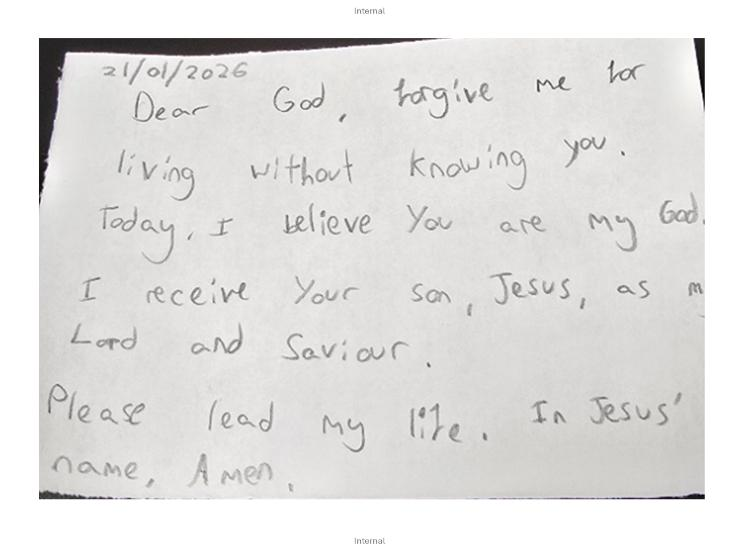 Internal
21/01/2026
Dear God, forgive me for
living without knowing you.
Today, I believe You are my God.
I receive Your son, Jesus, as m
Lord and Saviour.
Please lead my life. In Jesus'
name, Amen.
Internal